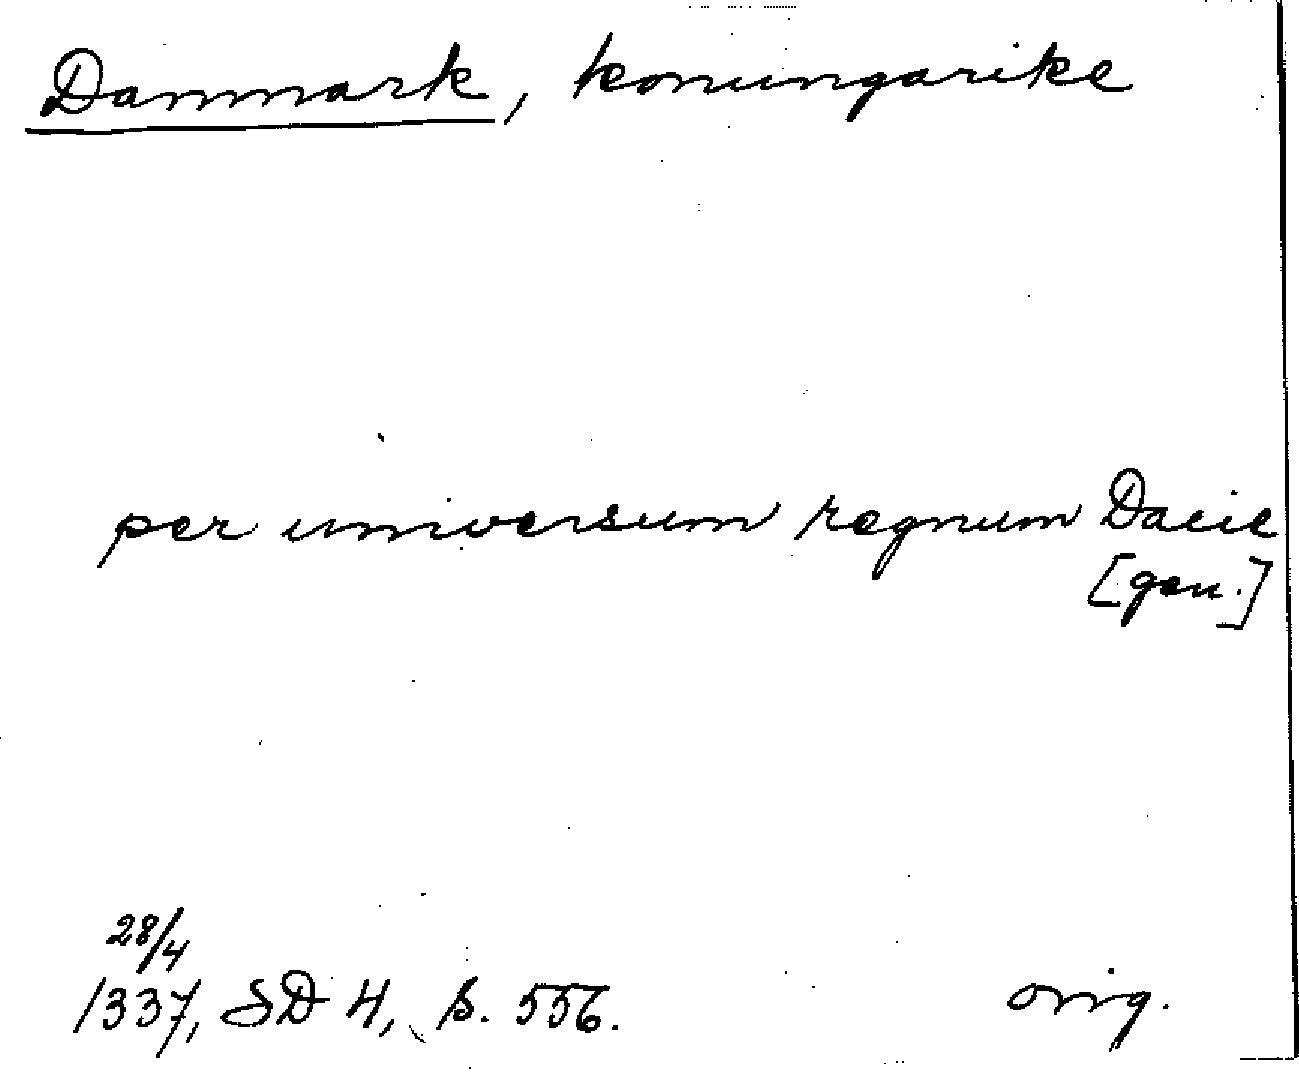 Danmark, konungarike
per universum regnum Dacie
[gen.]
28/4
1337, SD 4, s. 556.
orig.